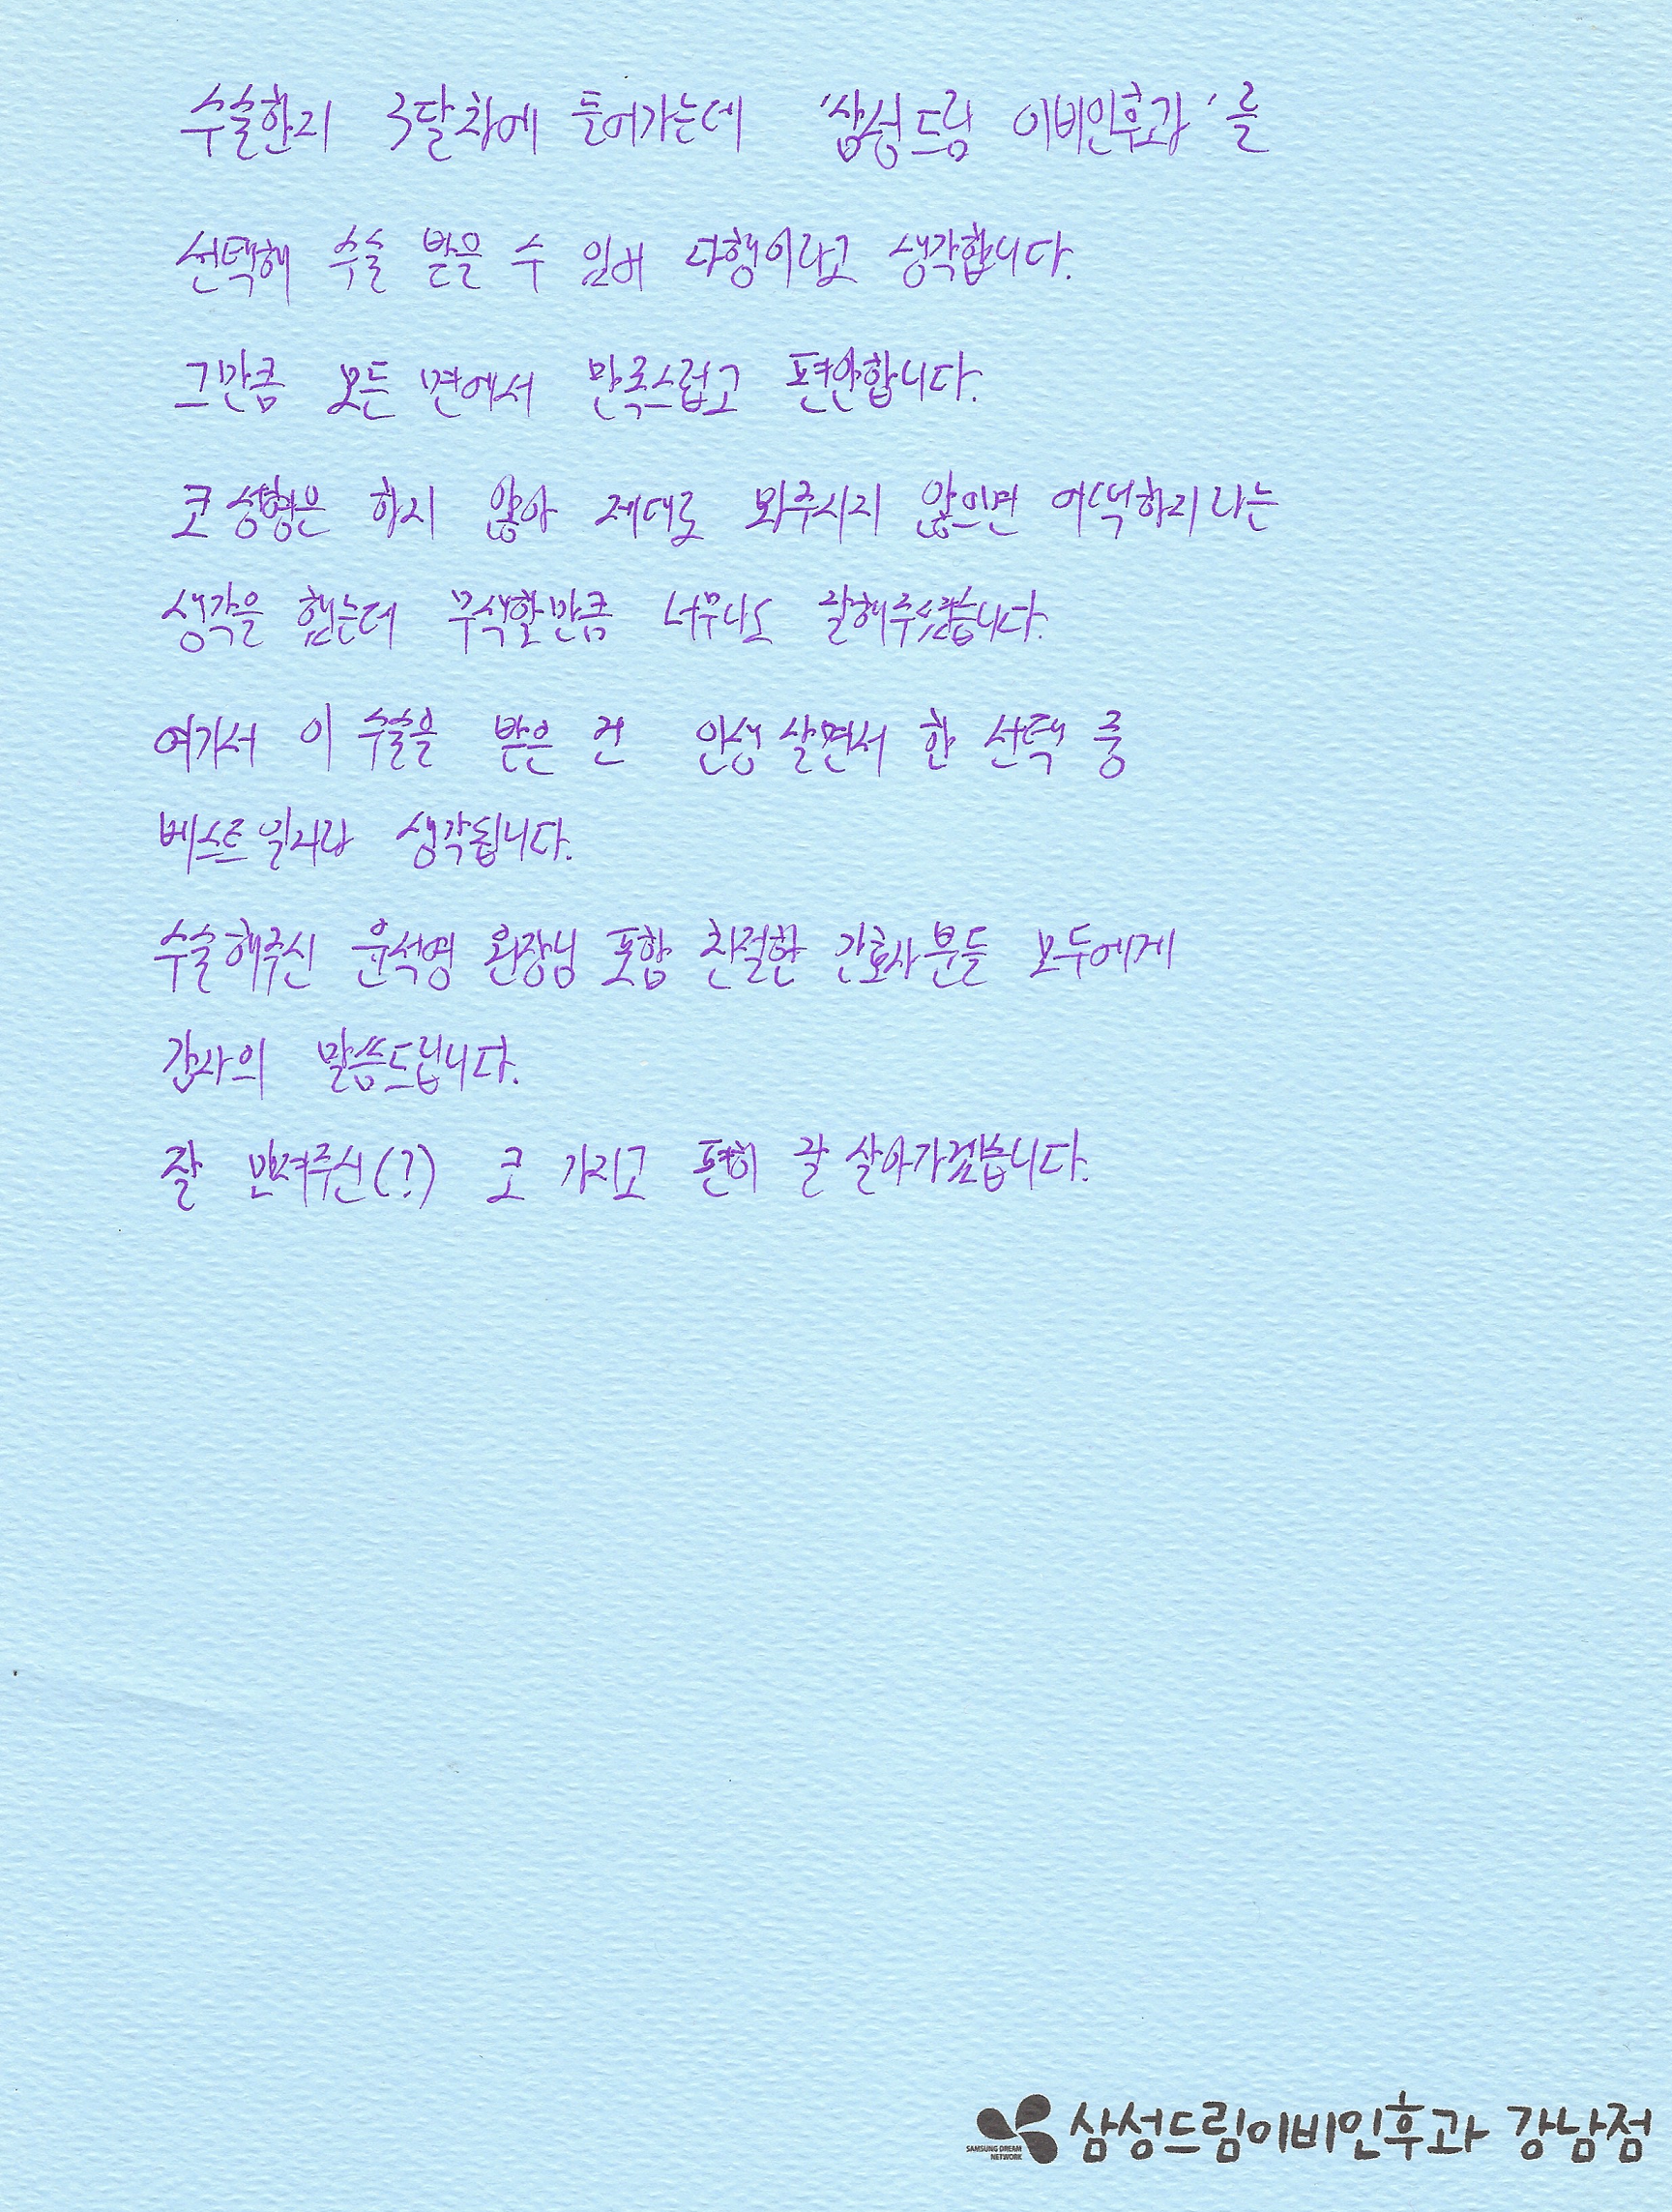 수술한지 3달차에 들어가는데 '삼성드림 이비인후과'를
선택해 수술 받을 수 있어 다행이라고 생각합니다.
그만큼 모든 면에서 만족스럽고 편안합니다.
코 성형은 하지 않아 제대로 봐주시지 않으면 어떡하지라는
생각을 했는데 무색할만큼 너무나도 잘해주셨습니다.
여기서 이 수술을 받은 건 인생 살면서 한 선택 중
베스트일거라 생각됩니다.
수술해주신 윤석영 원장님 포함 친절한 간호사분들 모두에게
감사의 말씀드립니다.
잘 만져주신(?) 코 가지고 편히 잘 살아가겠습니다.
SAMSUNG DREAM NETWORK 삼성드림이비인후과 강남점